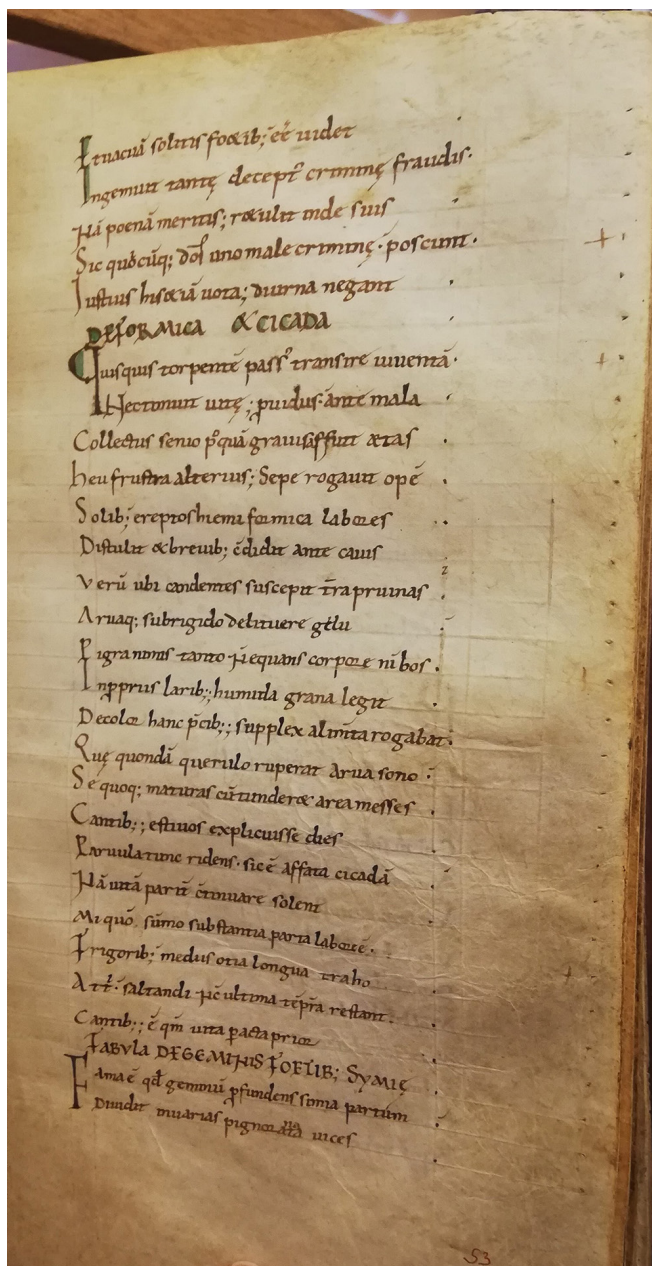 Et vacuā solitis foetib; eē uidet
Ingemuit tantę decept͛ criminę fraudis.
Nā poenā meritis; r&ulit inde suis
Sic quòcūq; dol͛ uno male criminę. poscunt.
Iustius his &iā uota; diurna negant
DE FORMICA & CICADA
Quisquis torpentē pass͛ transire iuuentā.
Nec timuit uitę; p̱uidus. ante mala
Collectus senio p͛quā grauis affuit &tas
heu frustra alterius; Sepe rogauit opē
Solib; ereptos hiemi formica labores
Distulit & breuib; c̄didit ante cauis
Verū ubi candentes suscepit t̄ra pruinas
Aruaq; sub rigido delituere gelu
Pigra nimis tanto ñ equans corpore nībos.
In ꝓpriis larib;; humida grana legit
Decolor hanc p̄cib;; supplex alim̄ta rogabat.
Quę quondā querulo ruperat arua sono
Se quoq; maturas cū tunder& area messes
Cantib;; estiuos explicuisse dies
Paruula tunc ridens. sic ē affata cicadā
Nā uitā parit̄ c̄tinuare solent
Mi quō. sūmo substantia parta labore.
Frigorib; mediis otia longua traho
At t̄. saltandi nc̄ ultima tēpra restant.
Cantib;; ē qm̄ uita peracta prior
FABVLA DE GEMINIS FOETIB; SYMIĘ
Fama ē qd̄ geminū ꝓfundens simia partum
Diuidit in uarias pignora nata uices
53